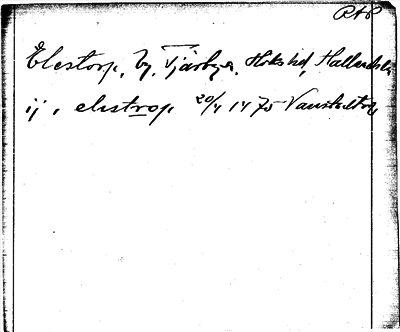 RAP
Elestorp, by, Tjärby s., Höks hd, Hallands l.
ij, elrstrop 20/4 1475 Vanstatorp